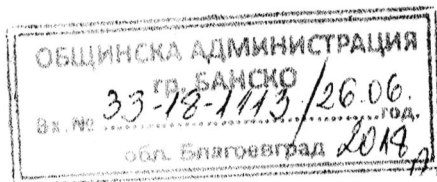 ОБЩИНСКА АДМИНИСТРАЦИЯ
гр. БАНСКО
Вх.№ 33-18-1113/26.06. год.
обл. Благоевград 2018